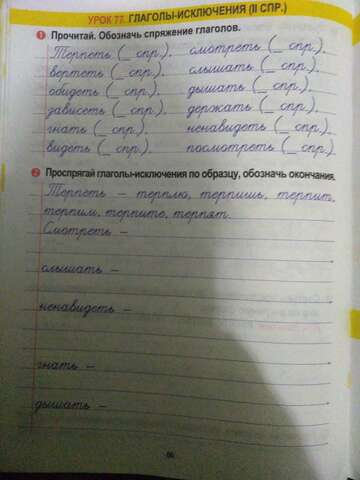 УРОК 77. ГЛАГОЛЫ-ИСКЛЮЧЕНИЯ (II СПР.)
1 Прочитай. Обозначь спряжение глаголов.
Терпеть (_ спр.), смотреть (_ спр.),
вертеть (_ спр.), слышать (_ спр.),
обидеть (_ спр.), дышать (_ спр.),
зависеть (_ спр.), держать (_ спр.),
гнать (_ спр.), ненавидеть (_ спр.),
видеть (_ спр.), посмотреть (_ спр.).
2 Проспрягай глаголы-исключения по образцу, обозначь окончания.
Терпеть – терплю, терпишь, терпит,
терпим, терпите, терпят.
Смотреть –
слышать –
ненавидеть –
гнать –
дышать –